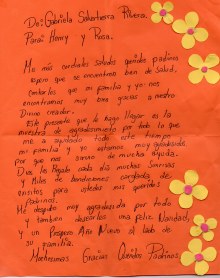 De: Gabriela Salvatierra Rivera.
Para: Henry y Rosa.
Mis mas cordiales saludos queridos padrinos
espero que se encuentren bien de salud,
contarles que mi familia y yo nos
encontramos muy bien gracias a nuestro
Divino creador.
Este presente que le hago llegar es la
muestra de agradecimiento por todo lo que
me a apoyado todo este tiempo
mi familia y yo estamos muy agradecidos
por que nos sirvio de mucha ayuda.
Dios le Pague nada de muchas Sonrisas
y Miles de bendiciones
para ustedes mis queridos
Padrinos.
Me despido muy agradecida por todo
y tambien desearles una feliz Navidad,
y un Prospero Año Nuevo al lado de
su familia.
Muchisimas Gracias Queridos Padrinos.